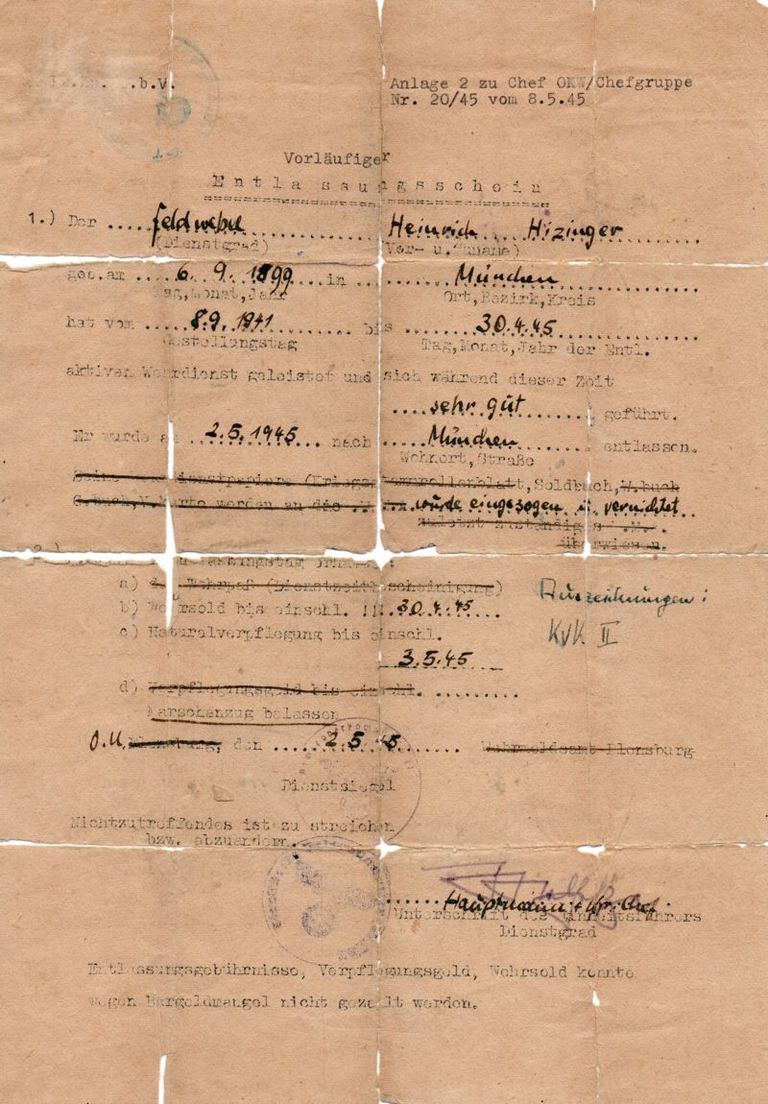 .b.V.
Anlage 2 zu Chef OKW/Chefgruppe
Nr. 20/45 vom 8.5.45
Vorläufiger
Entlassungsschein
1.) Der ..... Feldwebel Heinrich Hizinger
(Dienstgrad) Vor- u. Zuname)
geb.am ... 6. 9. 1899 ... in ... München
Tag,Monat,Jahr Ort,Bezirk,Kreis
hat vom ..... 8.9.1941 ..... bis ..... 30.4.45
Gestellungstag Tag,Monat,Jahr der Entl.
aktiven Wehrdienst geleistet und sich während dieser Zeit
.... sehr gut ...... geführt.
Er wurde a 2.5.1945 .... nach ... München ..... entlassen.
Wohnort,Straße
Soldbuch, W.buch
werden an das wurde eingezogen u. vernichtet
zuletzt zuständige
überwiesen.
a) Wehrpaß (Dienstzeitbescheinigung)
b) Wehrsold bis einschl. 30.4.45
Auszeichnungen:
c) Naturalverpflegung bis einschl.
KVK II
3.5.45
d) Verpflegungsgeld bis einschl. .........
Marschanzug belassen
O.U. Flensburg, den ..... 2.5.45 ....... Wehrmeldeamt Flensburg
Dienstsiegel
Nichtzutreffendes ist zu streichen
bzw. abzuändern.
Hauptmann u.
Unterschrift des Einheitsführers
Dienstgrad
Entlassungsgebührnisse, Verpflegungsgeld, Wehrsold konnte
wegen Bargeldmangel nicht gezahlt werden.